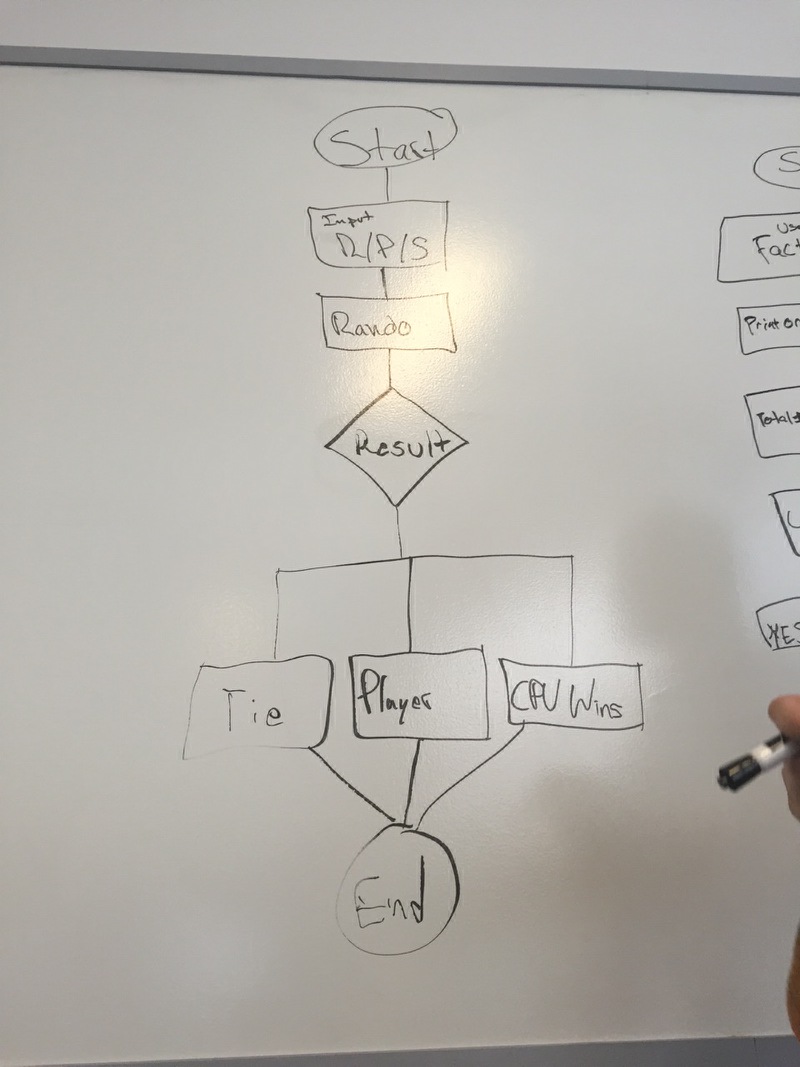 Start
Input
R/P/S
Rando
Result
Tie
Player
CPU Wins
End
Print
Total
YES